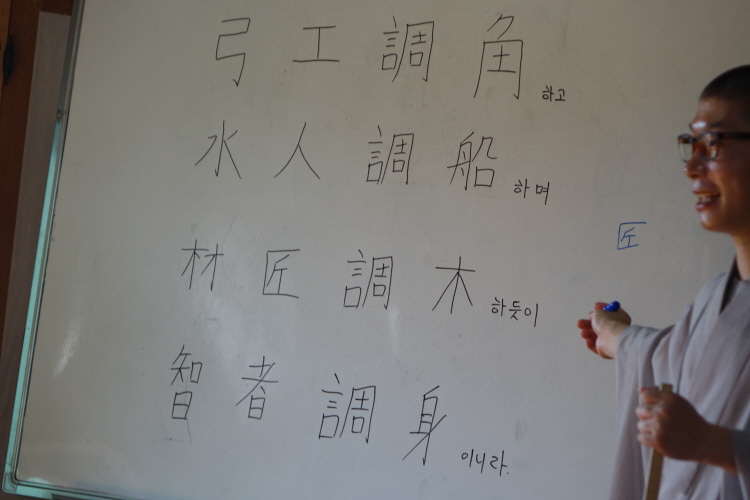 弓工調角하고
水人調船하며
材匠調木하듯이
智者調身이니라.
匠